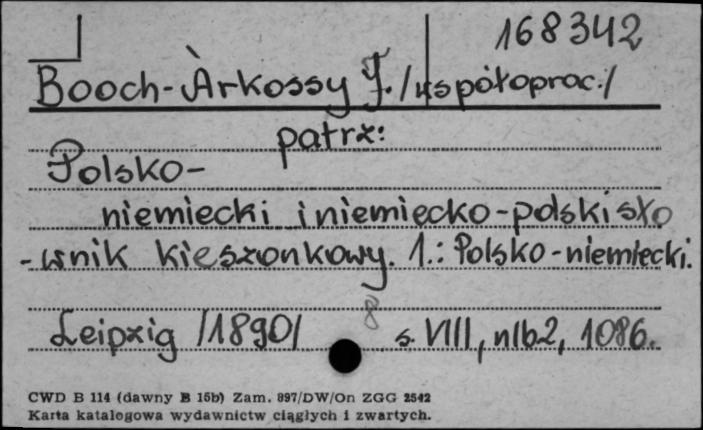 168342
Booch-Àrkossy J. /współoprac./
patrz:
Polsko-
niemiecki i niemięcko-polski sło
-wnik kieszonkowy. 1.: Polsko-niemiecki.
8
Leipzig /1890/ s. VIII, nlb2, 1086.
CWD B 114 (dawny B 15b) Zam. 897/DW/On ZGG 2542
Karta katalogowa wydawnictw ciągłych i zwartych.